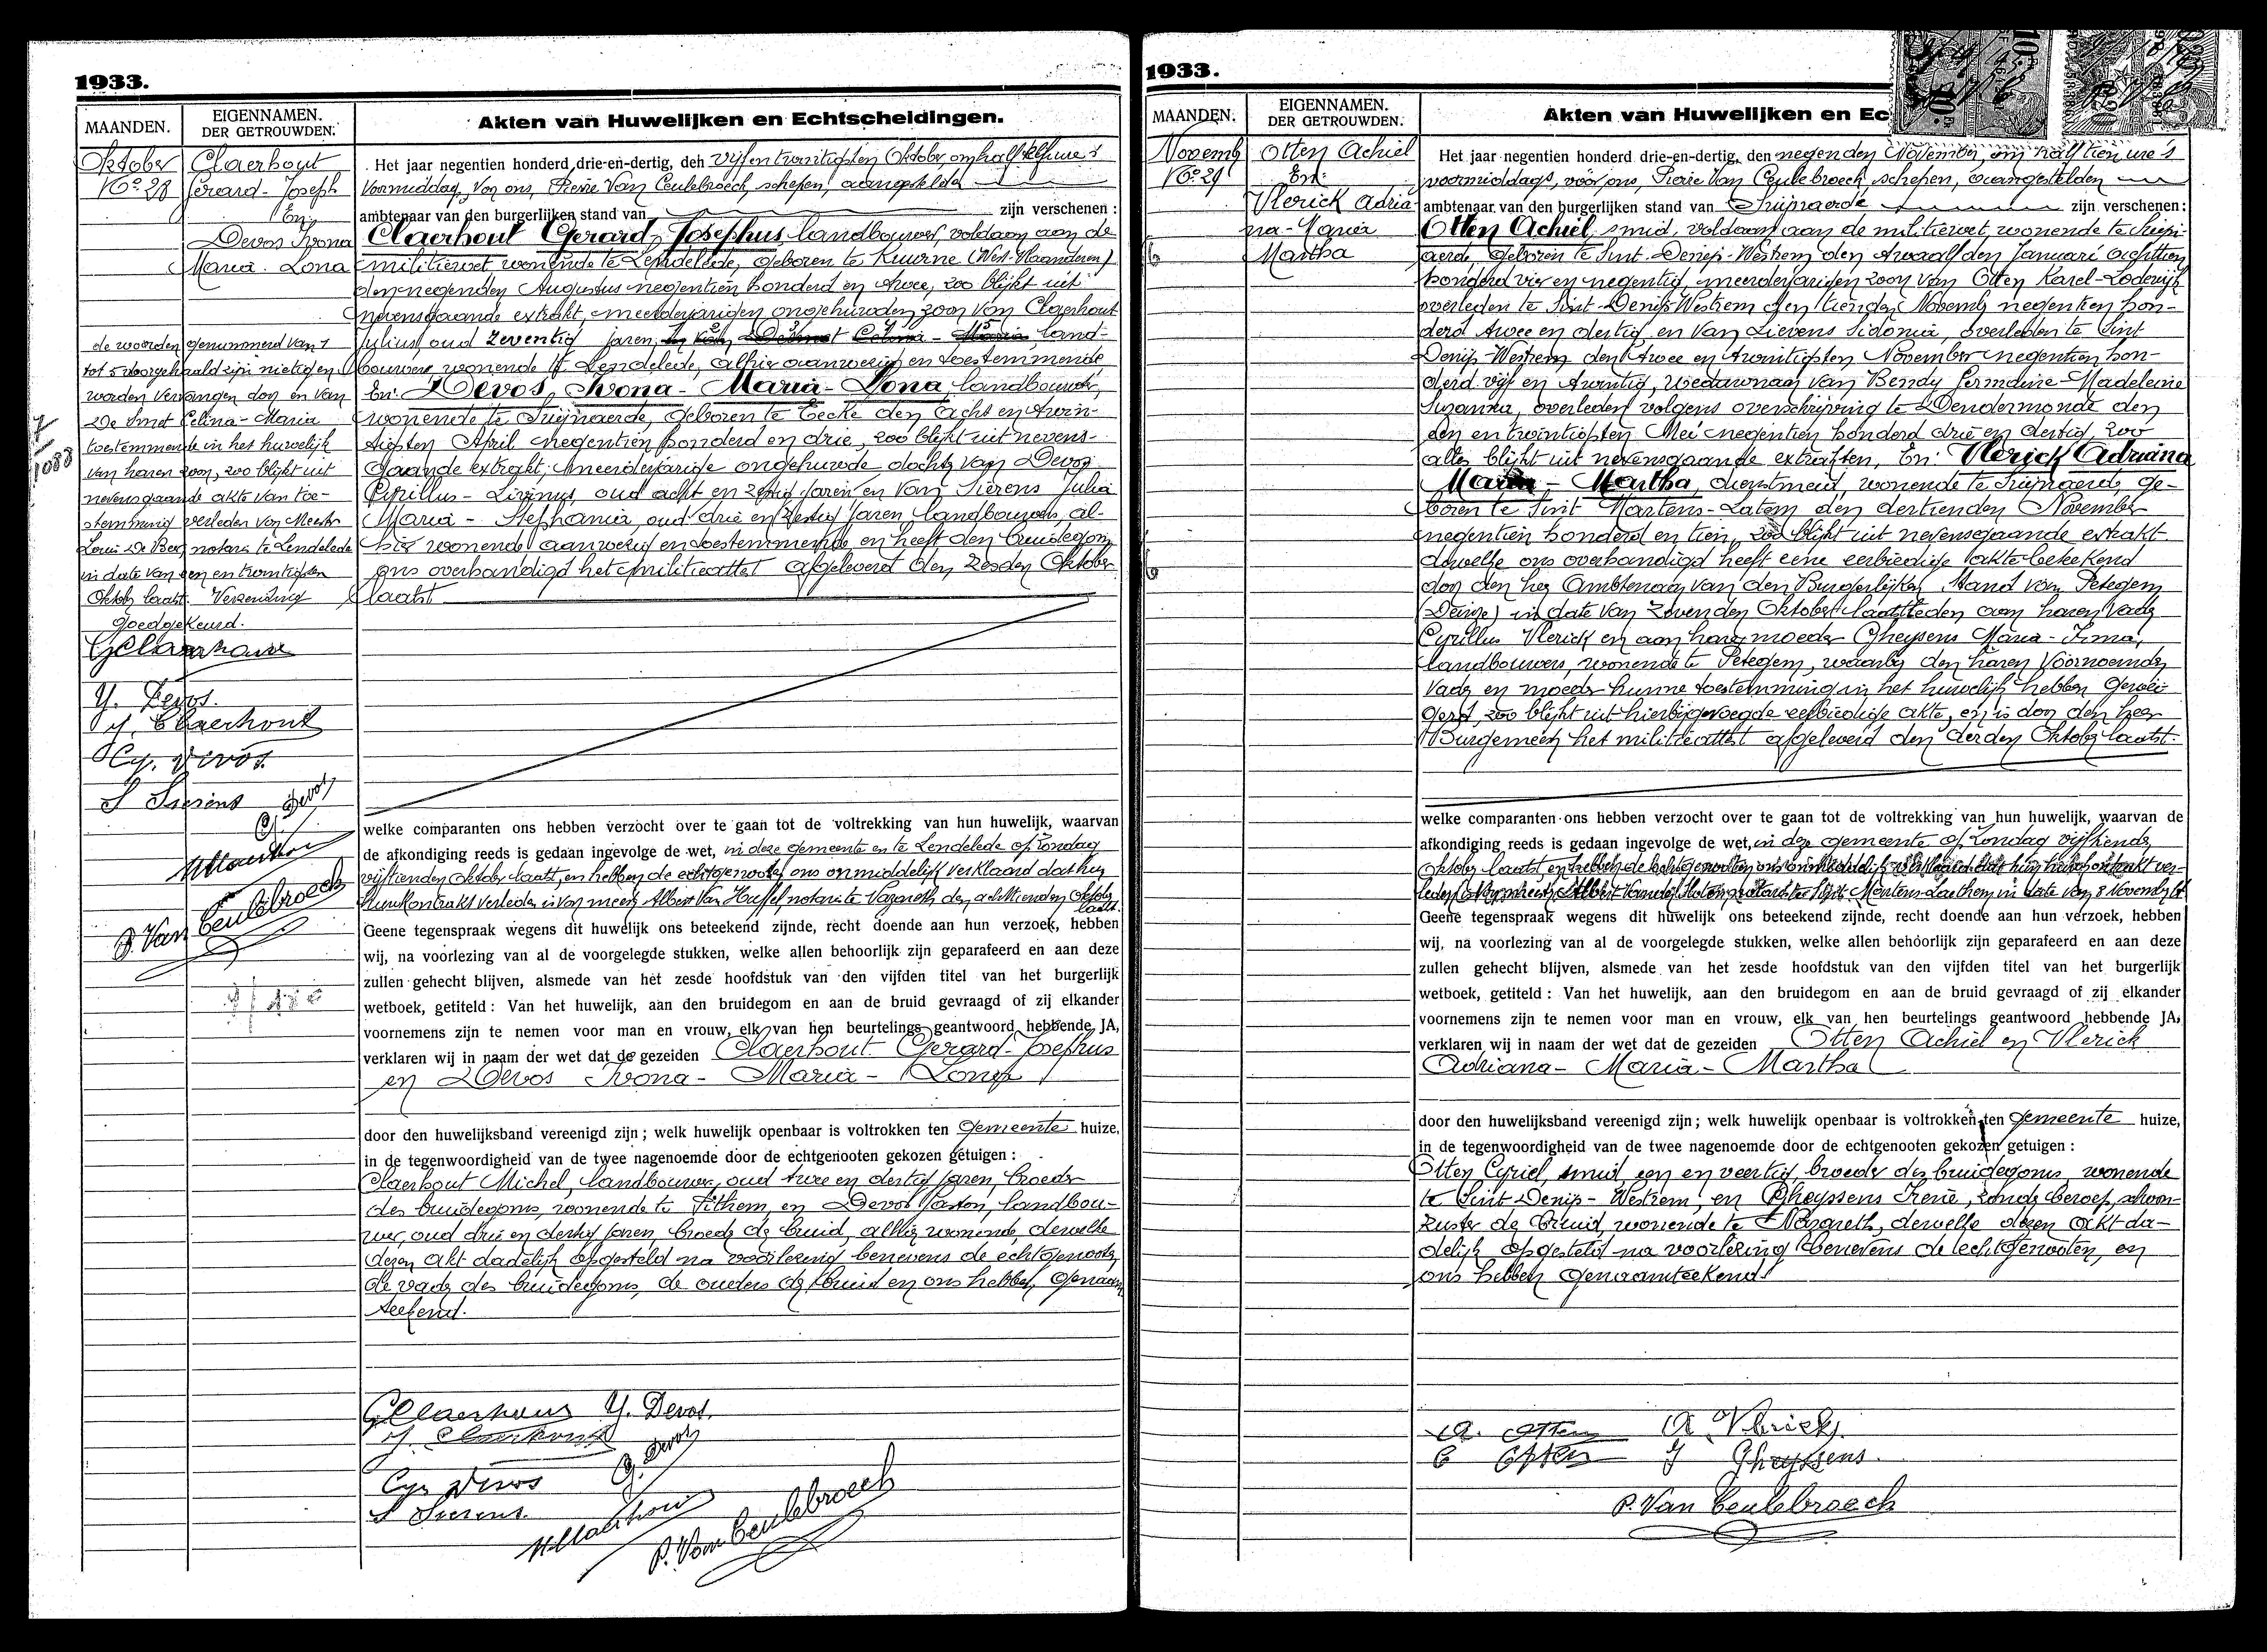 1933.
MAANDEN.
EIGENNAMEN.
DER GETROUWDEN.
Akten van Huwelijken en Echtscheidingen.
Oktober
No 28
Claerhout
Gerard-Joseph
En:
Devos Ivona
Maria-Lona
de woorden genummerd van 1
tot 5 voorgehaald zijn nietig en
worden vervangen door en van
De Smet Celina-Maria
toestemmende in het huwelijk
van haren zoon, zoo blijkt uit
nevensgaande akte van toe-
stemming verleden voor Meester
Louis De Bes, notaris te Lendelede
in date van een en twintigsten
Oktober laatst. Verzending
goedgekeurd.
G Claerhout
Y. Devos.
J. Claerhout
Cyr. Devos.
S Sierens
G. Devos
M Claerhout
P. Van Ceulebroeck
Het jaar negentien honderd drie-en-dertig, den vijfentwintigsten Oktober om half elf ure 's
voormiddag, voor ons, Pierre Van Ceulebroeck, schepen, aangestelden
ambtenaar van den burgerlijken stand van zijn verschenen:
Claerhout Gerard-Josephus landbouwer, voldaan aan de
militiewet wonende te Lendelede, geboren te Kuurne (West-Vlaanderen)
den negenden Augustus negentien honderd en twee, zoo blijkt uit
nevensgaande extrakt, meerderjarigen ongehuwden zoon van Claerhout
Julius, oud zeventig jaren, en van De Smet Celina-Maria land-
bouwers wonende te Lendelede, alhier aanwezig en toestemmende,
En: Devos, Ivona-Maria-Lona, landbouwster,
wonende te Zwijnaerde, geboren te Eecke den acht en twin-
tigsten April negentien honderd en drie, zoo blijkt uit nevens-
gaande extrakt, meerderjarige ongehuwde dochter van Devos
Cyrillus-Livinus, oud acht en zestig jaren en van Sierens Julia
Maria-Stephania, oud drie en zestig jaren landbouwers, al-
hier wonende aanwezig en toestemmende, en heeft den bruidegom
ons overhandigd het militieattest afgeleverd den zesden Oktober
laatst
welke comparanten ons hebben verzocht over te gaan tot de voltrekking van hun huwelijk, waarvan
de afkondiging reeds is gedaan ingevolge de wet, in deze gemeente en te Lendelede op Zondag
vijftienden Oktober laatst, en hebben de echtgenooten ons onmiddelijk verklaard dat hun
huwkontrakt verleden is voor meester Albert Van Huffel, notaris te Nazareth den achttienden Oktober
laatst.
Geene tegenspraak wegens dit huwelijk ons beteekend zijnde, recht doende aan hun verzoek, hebben
wij, na voorlezing van al de voorgelegde stukken, welke allen behoorlijk zijn geparafeerd en aan deze
zullen gehecht blijven, alsmede van het zesde hoofdstuk van den vijfden titel van het burgerlijk
wetboek, getiteld: Van het huwelijk, aan den bruidegom en aan de bruid gevraagd of zij elkander
voornemens zijn te nemen voor man en vrouw, elk van hen beurtelings geantwoord hebbende JA,
verklaren wij in naam der wet dat de gezeiden Claerhout Gerard-Josephus
en Devos Ivona-Maria-Lona
door den huwelijksband vereenigd zijn; welk huwelijk openbaar is voltrokken ten gemeente huize,
in de tegenwoordigheid van de twee nagenoemde door de echtgenooten gekozen getuigen:
Claerhout Michel, landbouwer, oud twee en dertig jaren, broeder
des bruidegoms, wonende te Pitthem, en Devos Gaston, landbou-
wer, oud drie en dertig jaren, broeder der bruid, alhier wonende, dewelke
dezen akt dadelijk opgesteld na voorlezing benevens de echtgenooten,
de vader des bruidegoms, de ouders der bruid en ons hebben genaam-
teekend.
G Claerhout Y. Devos.
J. Claerhout
G. Devos
Cyr Devos
S Sierens.
M Claerhout
P. Van Ceulebroeck
1933.
MAANDEN.
EIGENNAMEN.
DER GETROUWDEN.
Akten van Huwelijken en Ec
Novemb
No 29
Otten Achiel
En:
Vlerick Adria-
na-Maria
Martha
Het jaar negentien honderd drie-en-dertig, den negenden November, om half tien ure 's
voormiddags, vóór ons, Pierre Van Ceulebroeck, schepen, aangestelden
ambtenaar van den burgerlijken stand van Zwijnaerde zijn verschenen:
Otten Achiel, smid, voldaan aan de militiewet, wonende te Zwijn-
aerde, geboren te Sint-Denijs-Westrem den twaalfden Januari achttien
honderd vier en negentig, meerderjarigen zoon van Otten Karel-Lodewijk
overleden te Sint-Denijs-Westrem den tienden Novemb negentien hon-
derd twee en dertig, en van Lievens Sidonia, overleden te Sint
Denijs-Westrem den twee en twintigsten November negentien hon-
derd vijf en twintig, weduwnaar van Bendy Germaine-Madeleine
Suzanna, overleden volgens overschrijving te Dendermonde den
een en twintigsten Mei negentien honderd drie en dertig, zoo
alles blijkt uit nevensgaande extrakten, En: Vlerick Adriana
Maria-Martha, dienstmeid, wonende te Zwijnaerde, ge-
boren te Sint Martens-Latem den dertienden November
negentien honderd en tien, zoo blijkt uit nevensgaande extrakt
dewelke ons overhandigd heeft eene eerbiedige akte beteekend
door den heer Ambtenaar van den Burgerlijken Stand van Petegem
(Deinze) in date van zevenden Oktober laatstleden aan haren vader
Cyrillus Vlerick en aan hare moeder Gheysens Maria-Irma,
landbouwers, wonende te Petegem, waarbij den haren voornoemden
vader en moeder hunne toestemming in het huwelijk hebben gewei-
gerd, zoo blijkt uit hierbijgevoegde eerbiedige akte, en is door den heer
Burgemeester het militieattest afgeleverd den derden Oktober laatst.
welke comparanten ons hebben verzocht over te gaan tot de voltrekking van hun huwelijk, waarvan de
afkondiging reeds is gedaan ingevolge de wet, in deze gemeente op Zondag vijftienden
Oktober laatst, en hebben de echtgenooten ons onmiddelijk verklaard dat hun huwkontrakt ver-
leden is voor meester Albert notaris te Sint Martens-Laethem in date van 8 November
Geene tegenspraak wegens dit huwelijk ons beteekend zijnde, recht doende aan hun verzoek, hebben
wij, na voorlezing van al de voorgelegde stukken, welke allen behoorlijk zijn geparafeerd en aan deze
zullen gehecht blijven, alsmede van het zesde hoofdstuk van den vijfden titel van het burgerlijk
wetboek, getiteld: Van het huwelijk, aan den bruidegom en aan de bruid gevraagd of zij elkander
voornemens zijn te nemen voor man en vrouw, elk van hen beurtelings geantwoord hebbende JA,
verklaren wij in naam der wet dat de gezeiden Otten Achiel en Vlerick
Adriana-Maria-Martha
door den huwelijksband vereenigd zijn; welk huwelijk openbaar is voltrokken ten gemeente huize,
in de tegenwoordigheid van de twee nagenoemde door de echtgenooten gekozen getuigen:
Otten Cyriel, smid, een en veertig, broeder des bruidegoms, wonende
te Sint-Denijs-Westrem, en Gheyssens Irene, zonder beroep, schoon-
zuster der bruid, wonende te Nazareth, dewelke dezen akt da-
delijk opgesteld na voorlezing benevens de echtgenooten, en
ons hebben genaamteekend.
A. Otten A. Vlerick.
C Otten J Gheyssens.
P. Van Ceulebroeck